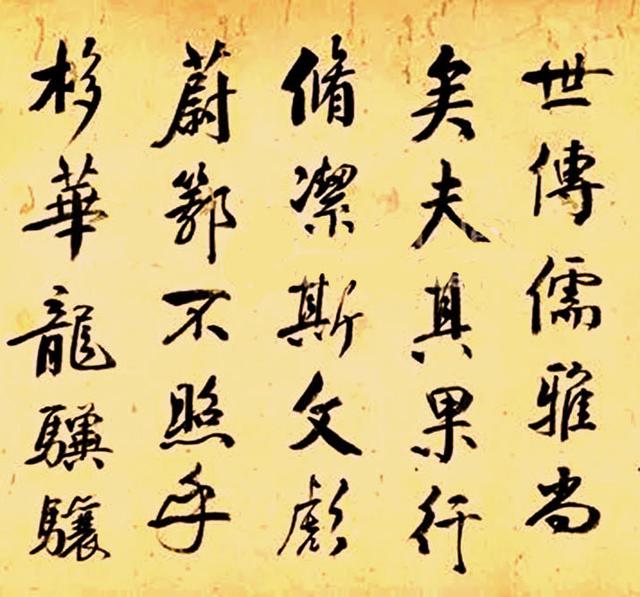 世傳儒雅尚
矣夫其果行
脩潔斯文彪
蔚鄂不照乎
移華龍驥驤